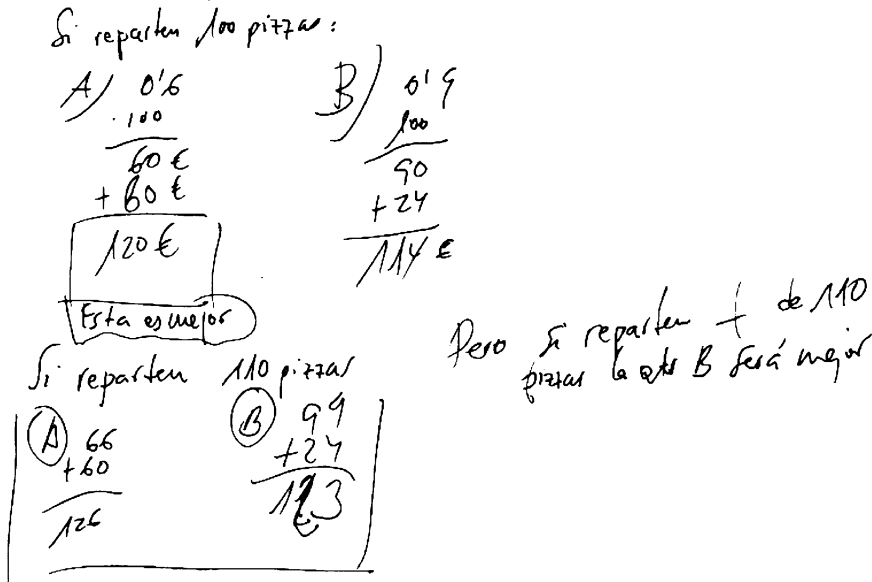 Si reparten 100 pizzas:
A) 0'6
· 100
60 €
+ 60 €
120 €
Esta es mejor
B) 0'9
100
90
+ 24
114 €
Si reparten 110 pizzas
A 66
+ 60
126
B 99
+ 24
123
Pero si reparten + de 110
pizzas la B será mejor